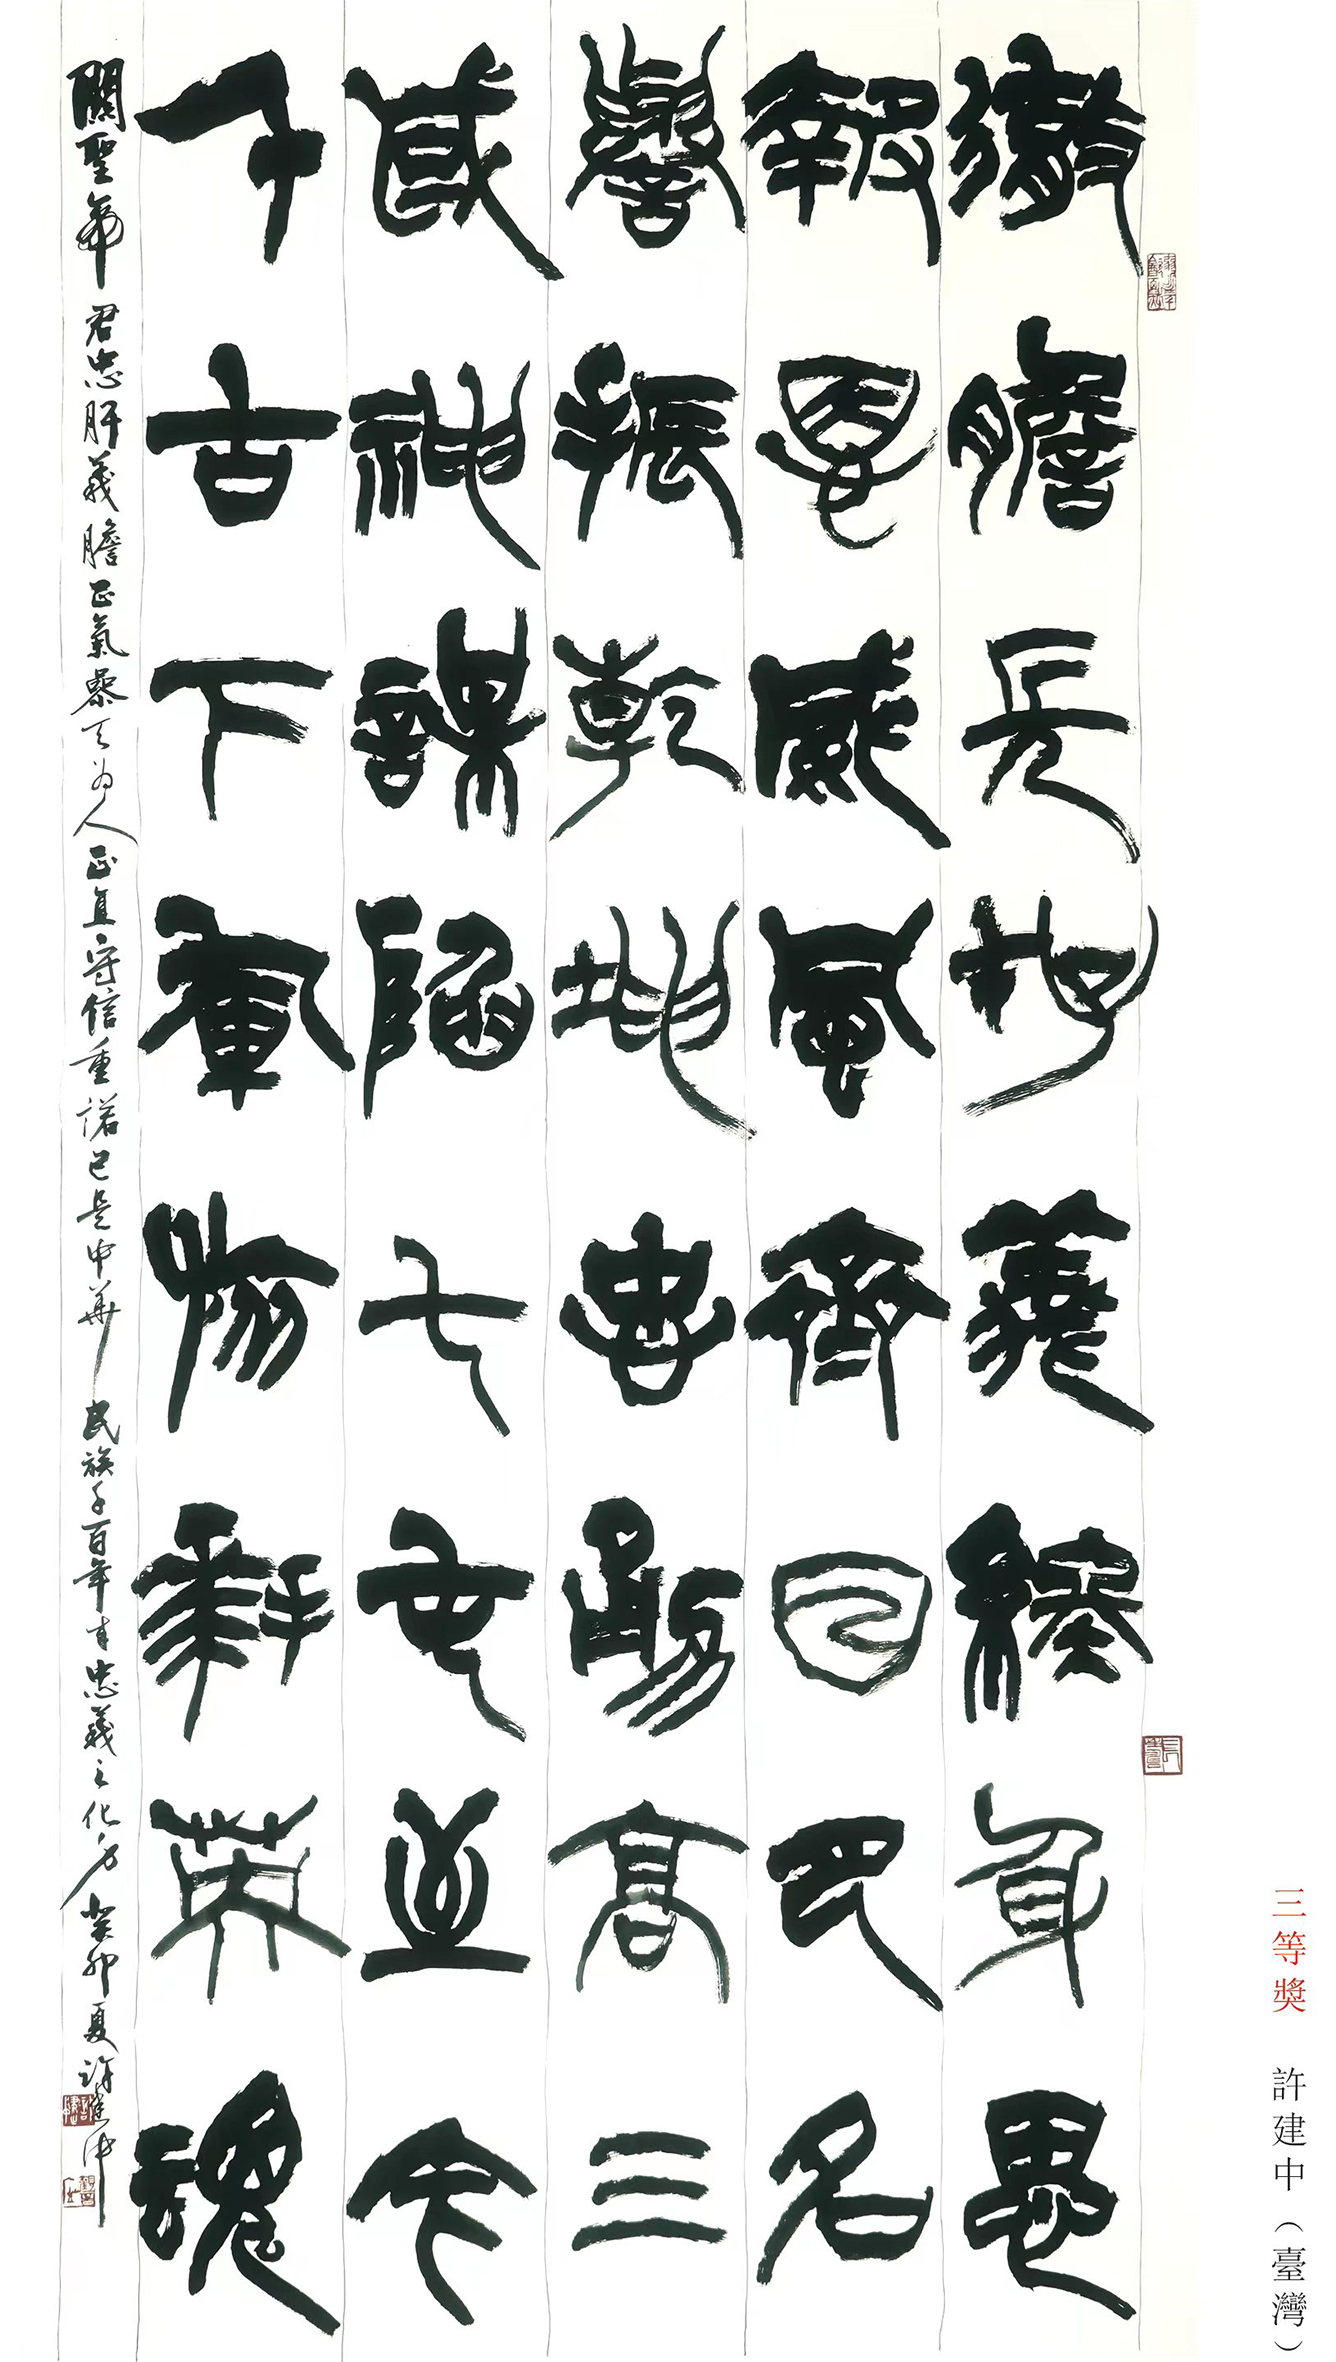 徹膽長存義終身思
報恩威風齊日月名
譽振乾坤忠勇高三
國神謀陷七屯至今
千古下軍旅拜英魂
關聖帝君忠肝義膽正氣參天為人正直守信重諾已是中華民族千百年來忠義之化身癸卯夏許建中
三等獎 許建中（臺灣）